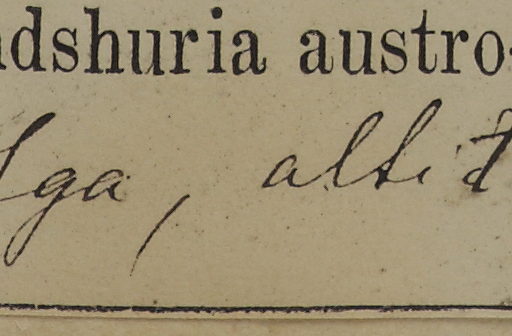 adshuria austro-
lga, altit